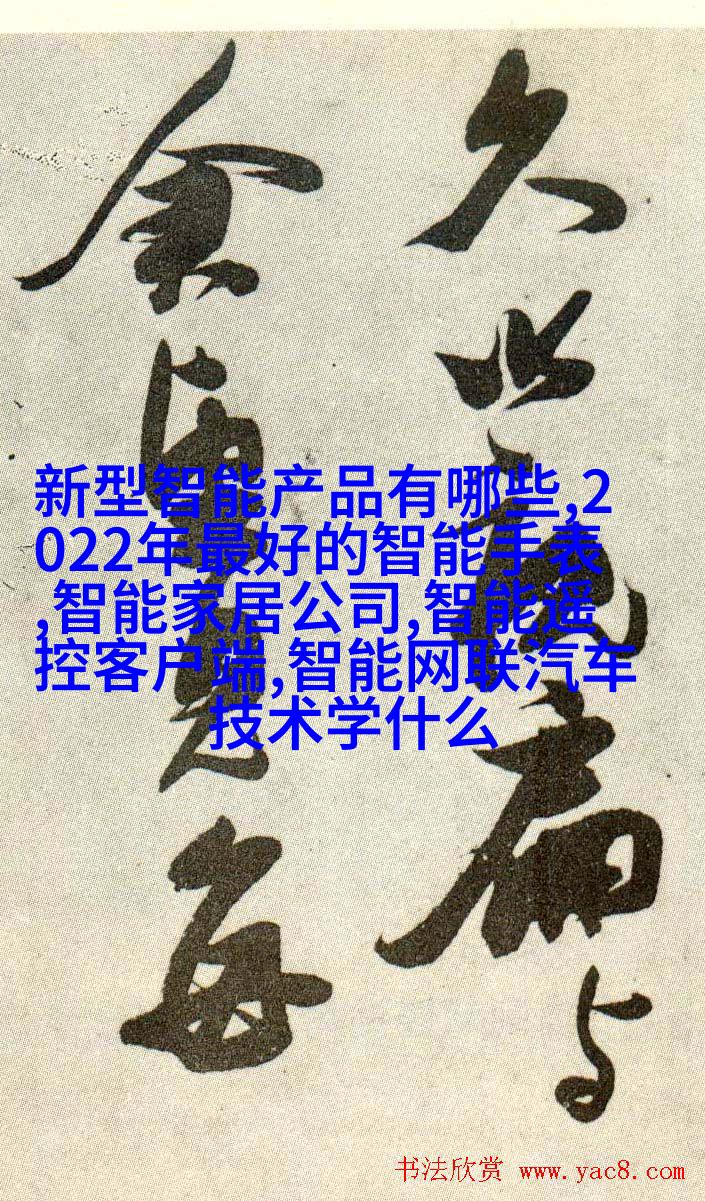 久 扁与
余 每
新型智能产品有哪些,2
022年最好的智能手表
,智能家居公司,智能遥
控客户端,智能网联汽车
技术学什么
书法欣赏 www.yac8.com